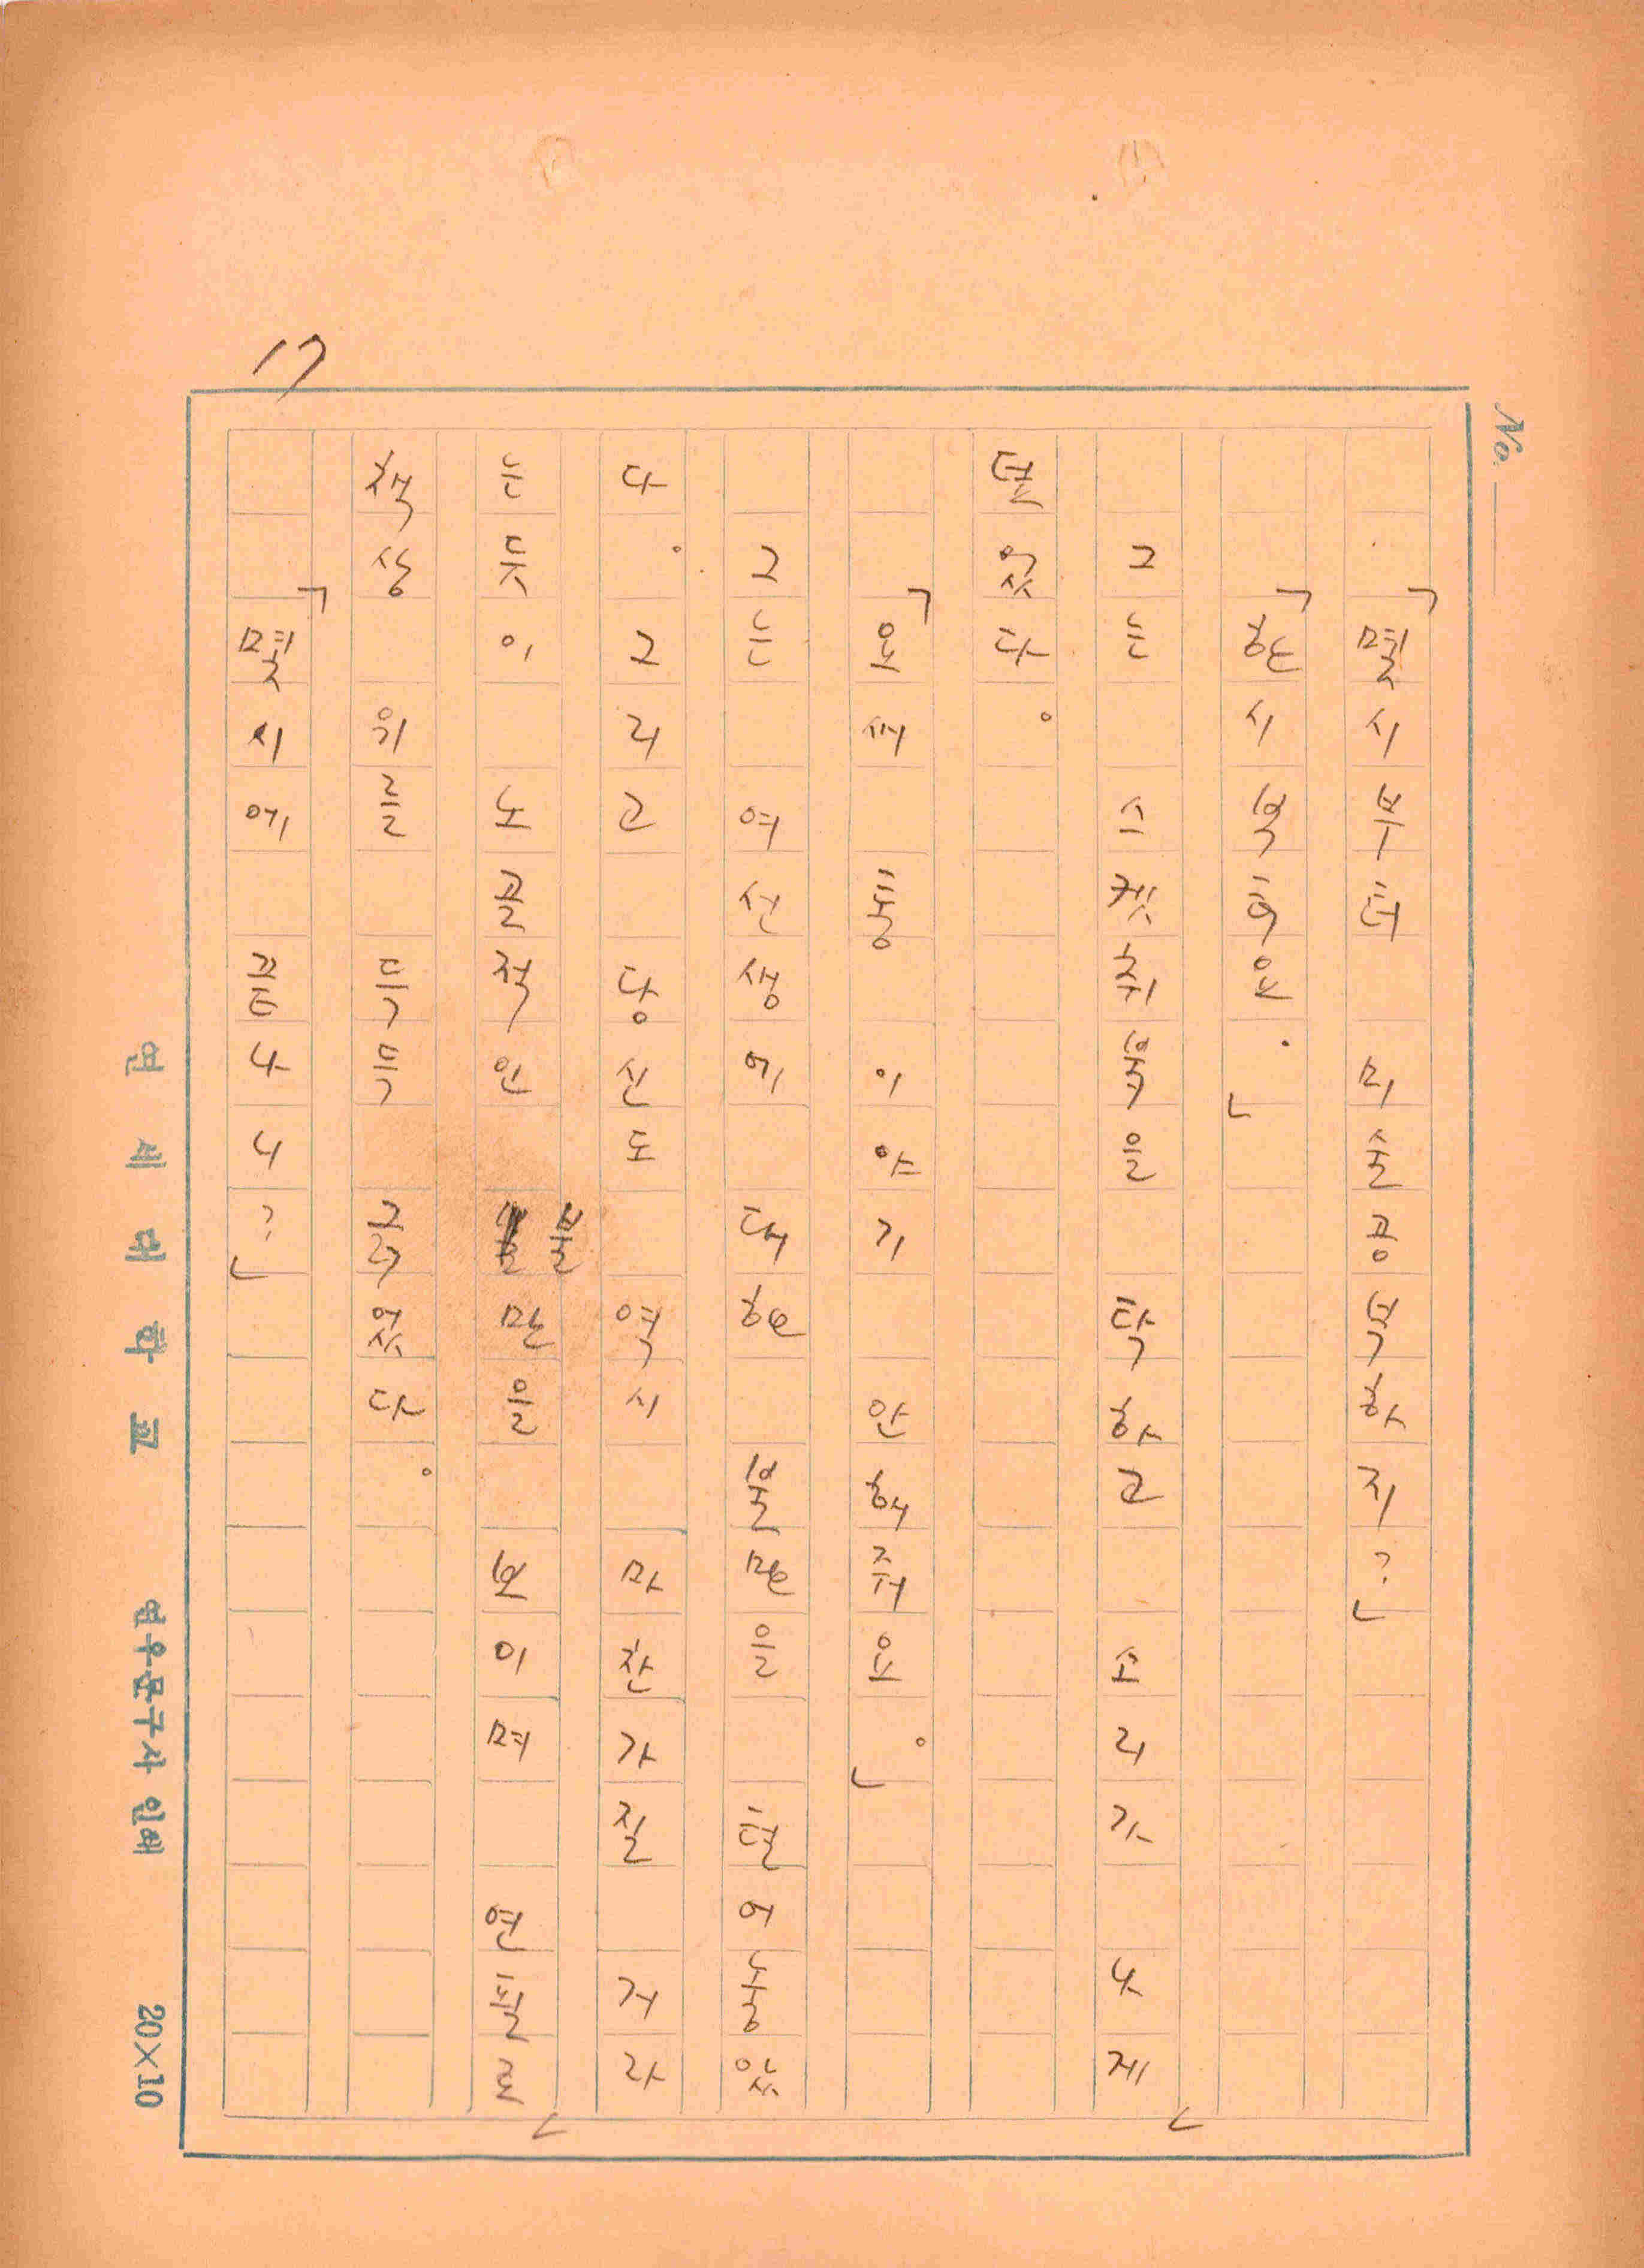 No.
17
「몇시부터 미술공부하지?」
「한시부터요.」
그는 스케치북을 탁하고 소리가 나게
덮었다.
「요새 통 이야기 안해줘요.」
그는 여선생에 대한 불만을 털어놓았
다. 그리고 당신도 역시 마찬가질 거라
는 듯이 노골적인 불만을 보이며 연필로
책상 위를 득득 긁었다.
「몇시에 끝나니?」
연세대학교 연우문구사 인쇄 20×10